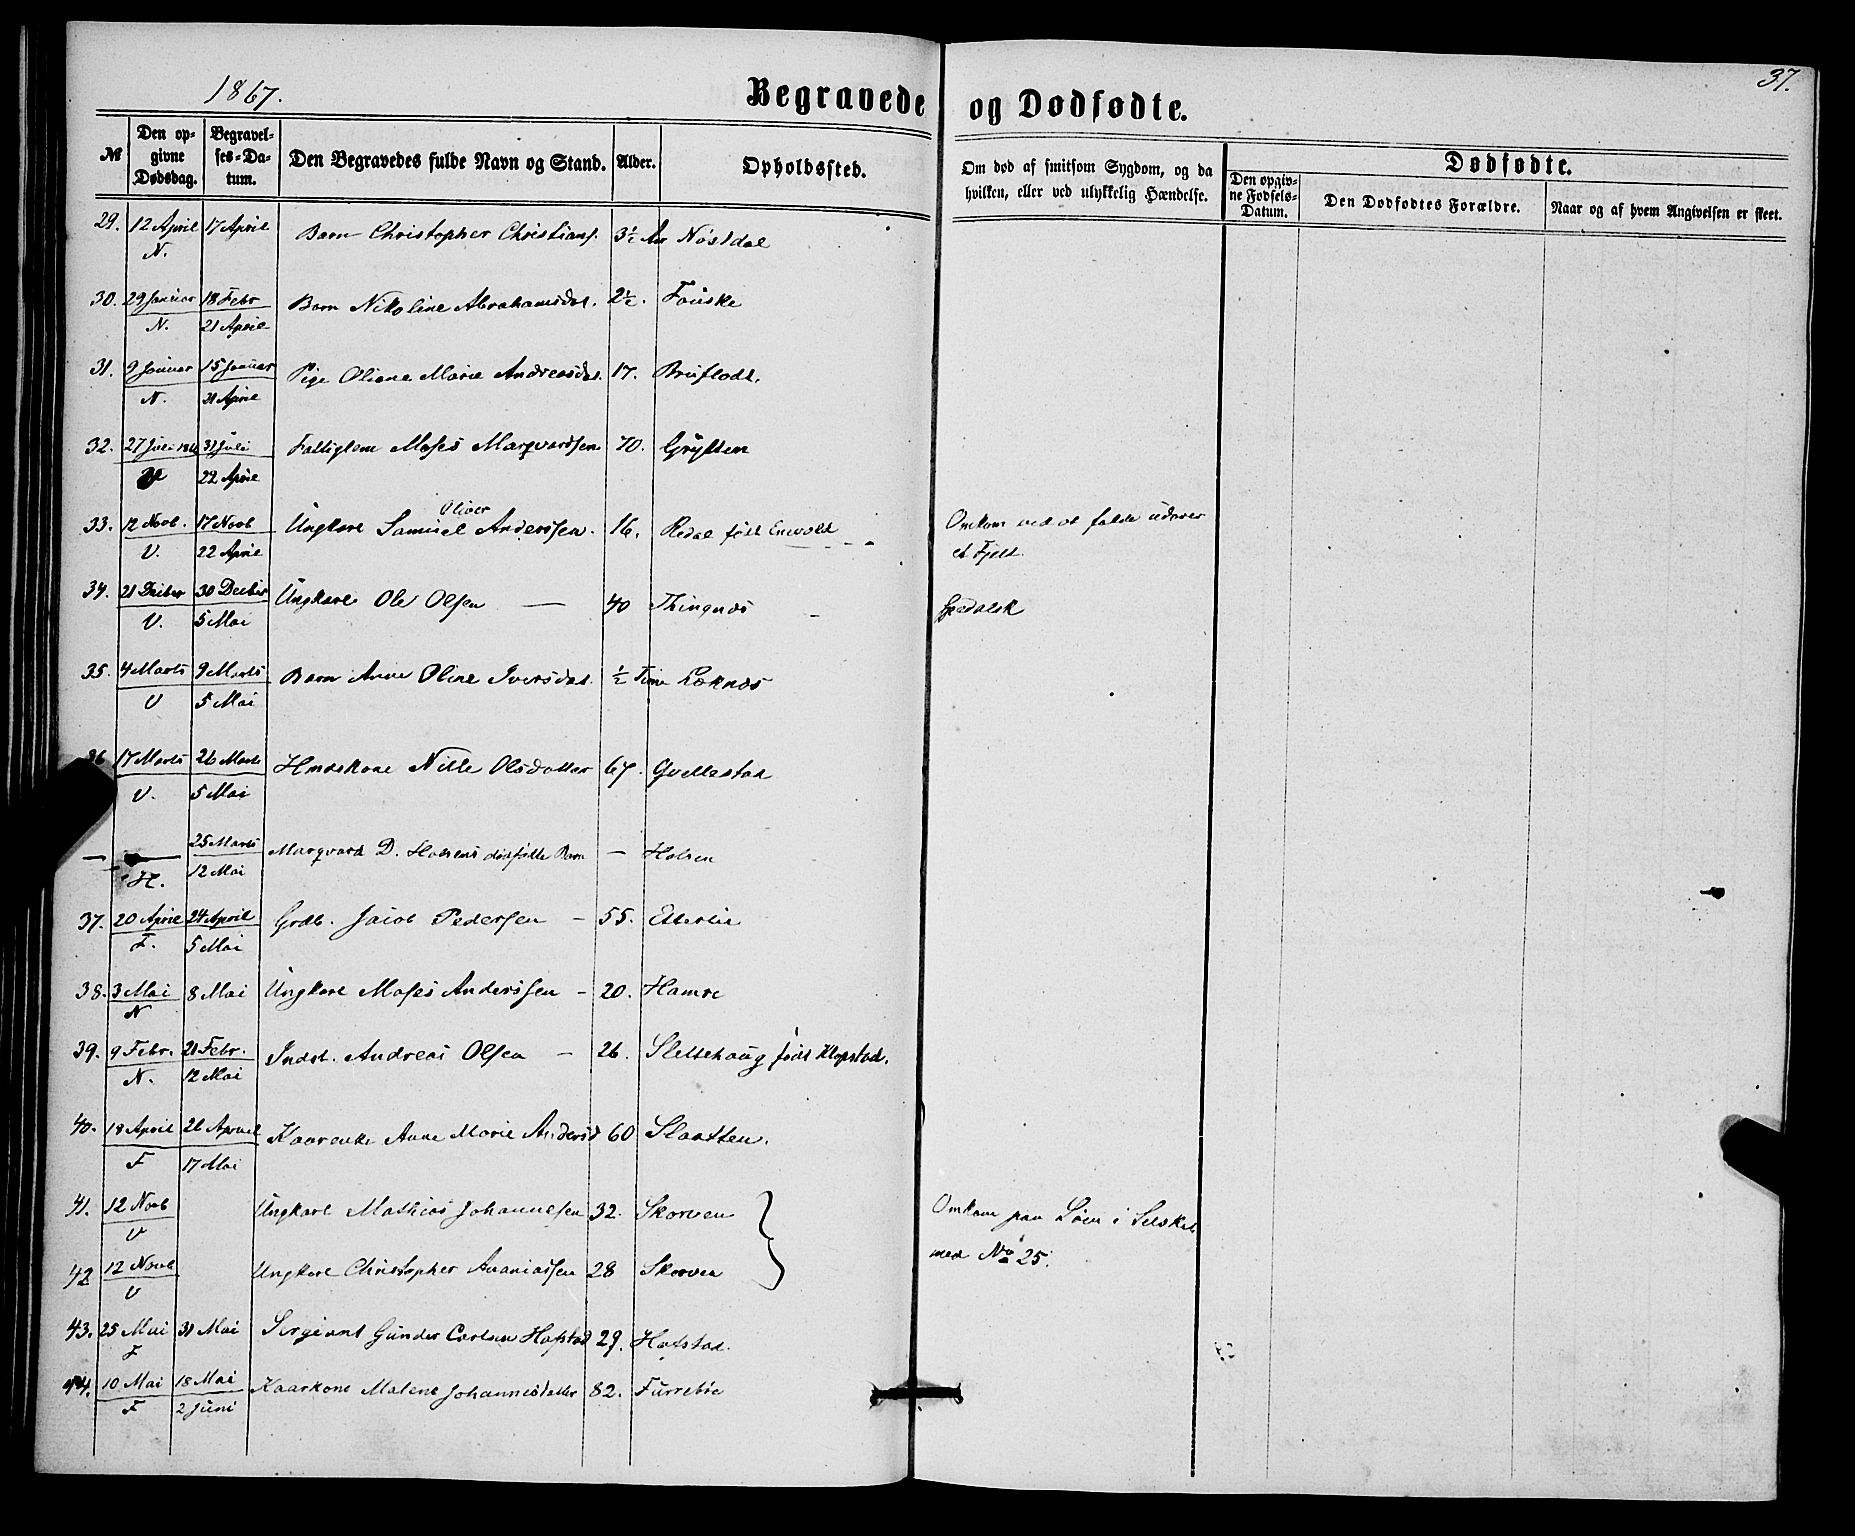 1867.
37.
Begravede og Dødfødte.
№ Den opgivne Dødsdag. Begravelses-Datum. Den Begravedes fulde Navn og Stand. Alder. Opholdssted. Om død af smitsom Sygdom, og da hvilken, eller ved ulykkelig Hændelse. Dødfødte. Den opgivne Fødsels-Datum. Den Dødfødtes Forældre. Naar og af hvem Angivelsen er skeet.
29. 12 April 17 April Barn Christopher Christians. 3½ Aar Nøstdal
N.
30. 29 Januar 18 Febr Barn Nikoline Abrahamsdat. 2½. Fauske
N. 21 April
31. 9 Januar 15 Januar Pige Oliane Marie Andreasdat. 17. Bruflodt.
N. 21 April
32. 27 Juli 31 Juli Fattiglem Moses Marqvardsen 70. Grytten
V 22 April
33. 12 Novb. 17 Novb Ungkare Samuel Oliver Anderssen. 16. Redal født Enevold Omkom ved at falde udover
V. 22 April et Fjeld.
34. 21 Decber 30 Decber Ungkarl Ole Olsen — 40 Thingnæs Spedalsk
V. 5 Mai
35. 4 Marts 9 Marts Barn Anne Oline Iversdat. ½ Time Leknæs
V 5 Mai
36 17 Marts 26 Marts Hmdskone Nille Olsdatter 67. Gvellestad
V. 5 Mai
— 25 Marts Marqvard D. Holsens dødfødte Barn — Holsen
H. 12 Mai
37. 20 April 24 April Grdb. Jacob Pedersen — 55. Etterlie
F. 5 Mai
38. 3 Mai 8 Mai Ungkarl Moses Anderssen — 20. Hamre
N
39. 9 Febr. 21 Febr. Indst. Andreas Olsen — 26. Slettehaug født Klopstad.
N. 12 Mai
40. 18 April 26 April Kaarenke Anne Marie Andersd 60 Slaatten.
F 17 Mai
41. 12 Novb Ungkarl Mathias Johannesen 32. Skorven Omkom paa Søen i Selskab
V med No 25.
42 12 Novb Ungkarl Christopher Ananiassen 28 Skorven
V
43. 25 Mai 31 Mai Sergiant Gunder Carlsen Hafstad 29. Hafstad.
F
44. 10 Mai 18 Mai Kaarkone Malene Johannesdatter 82. Furrebøe
F 2 Juni